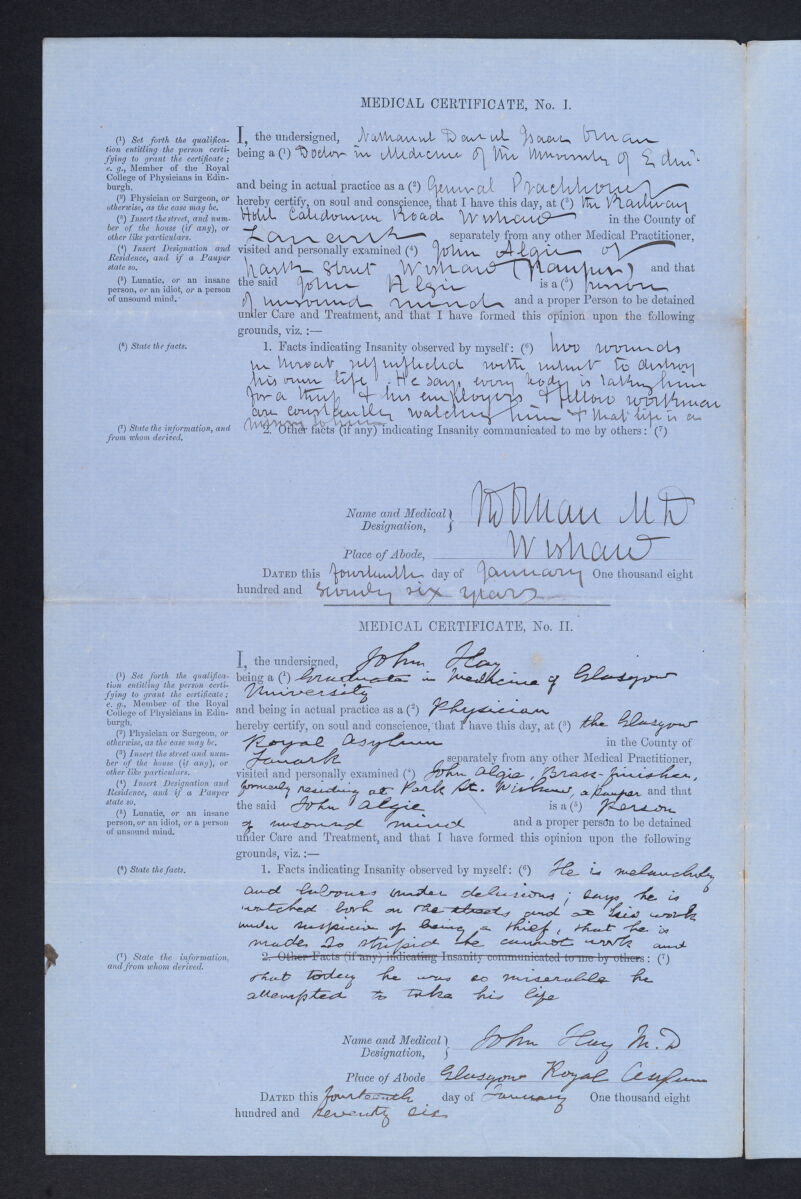 MEDICAL CERTIFICATE, No. I.
(¹) Set forth the qualifica-
tion entitling the person certi-
fying to grant the certificate;
e. g., Member of the Royal
College of Physicians in Edin-
burgh.
(²) Physician or Surgeon, or
otherwise, as the case may be.
(³) Insert the street, and num-
ber of the house (if any), or
other like particulars.
(⁴) Insert Designation and
Residence, and if a Pauper
state so.
(⁵) Lunatic, or an insane
person, or an idiot, or a person
of unsound mind.
(⁶) State the facts.
(⁷) State the information, and
from whom derived.
I, the undersigned, Nathaniel Daniel Isaac Oman
being a (¹) Doctor in Medicine of the University of Edin.
and being in actual practice as a (²) General Practitioner
hereby certify, on soul and conscience, that I have this day, at (³) the Railway
Hotel Caledonian Road Wishaw in the County of
Lanark separately from any other Medical Practitioner,
visited and personally examined (⁴) John Algie of
Park Street Wishaw (Pauper) and that
the said John Algie is a (⁵) person
of unsound mind and a proper Person to be detained
under Care and Treatment, and that I have formed this opinion upon the following
grounds, viz. :—
1. Facts indicating Insanity observed by myself: (⁶) two wounds
in throat self inflicted with intent to destroy
his own life. He says every body is taking him
for a thief & his employers & fellow workman
are constantly watching him & that life is a
misery to him
2. Other facts (if any) indicating Insanity communicated to me by others: (⁷)
Name and Medical Designation, Oman M D
Place of Abode, Wishaw
DATED this fourteenth day of January One thousand eight
hundred and seventy six years
MEDICAL CERTIFICATE, No. II.
(¹) Set forth the qualifica-
tion entitling the person certi-
fying to grant the certificate;
e. g., Member of the Royal
College of Physicians in Edin-
burgh.
(²) Physician or Surgeon, or
otherwise, as the case may be.
(³) Insert the street and num-
ber of the house (if any), or
other like particulars.
(⁴) Insert Designation and
Residence, and if a Pauper
state so.
(⁵) Lunatic, or an insane
person, or an idiot, or a person
of unsound mind.
(⁶) State the facts.
(⁷) State the information,
and from whom derived.
I, the undersigned, John Hay
being a (¹) Graduate in Medicine of Glasgow
University
and being in actual practice as a (²) Physician
hereby certify, on soul and conscience, that I have this day, at (³) the Glasgow
Royal Asylum in the County of
Lanark separately from any other Medical Practitioner,
visited and personally examined (⁴) John Algie, Brass-finisher,
formerly residing at Park St. Wishaw, a Pauper and that
the said John Algie is a (⁵) Person
of unsound mind and a proper person to be detained
under Care and Treatment, and that I have formed this opinion upon the following
grounds, viz. :—
1. Facts indicating Insanity observed by myself: (⁶) He is melancholy
and labours under delusions; says he is
watched both on the streets and at his work
under suspicion of being a thief, that he is
made so stupid he cannot work and
2. Other Facts (if any) indicating Insanity communicated to me by others: (⁷)
that today he was so miserable he
attempted to take his life
Name and Medical Designation, John Hay M.D
Place of Abode Glasgow Royal Asylum
DATED this fourteenth day of January One thousand eight
hundred and seventy six